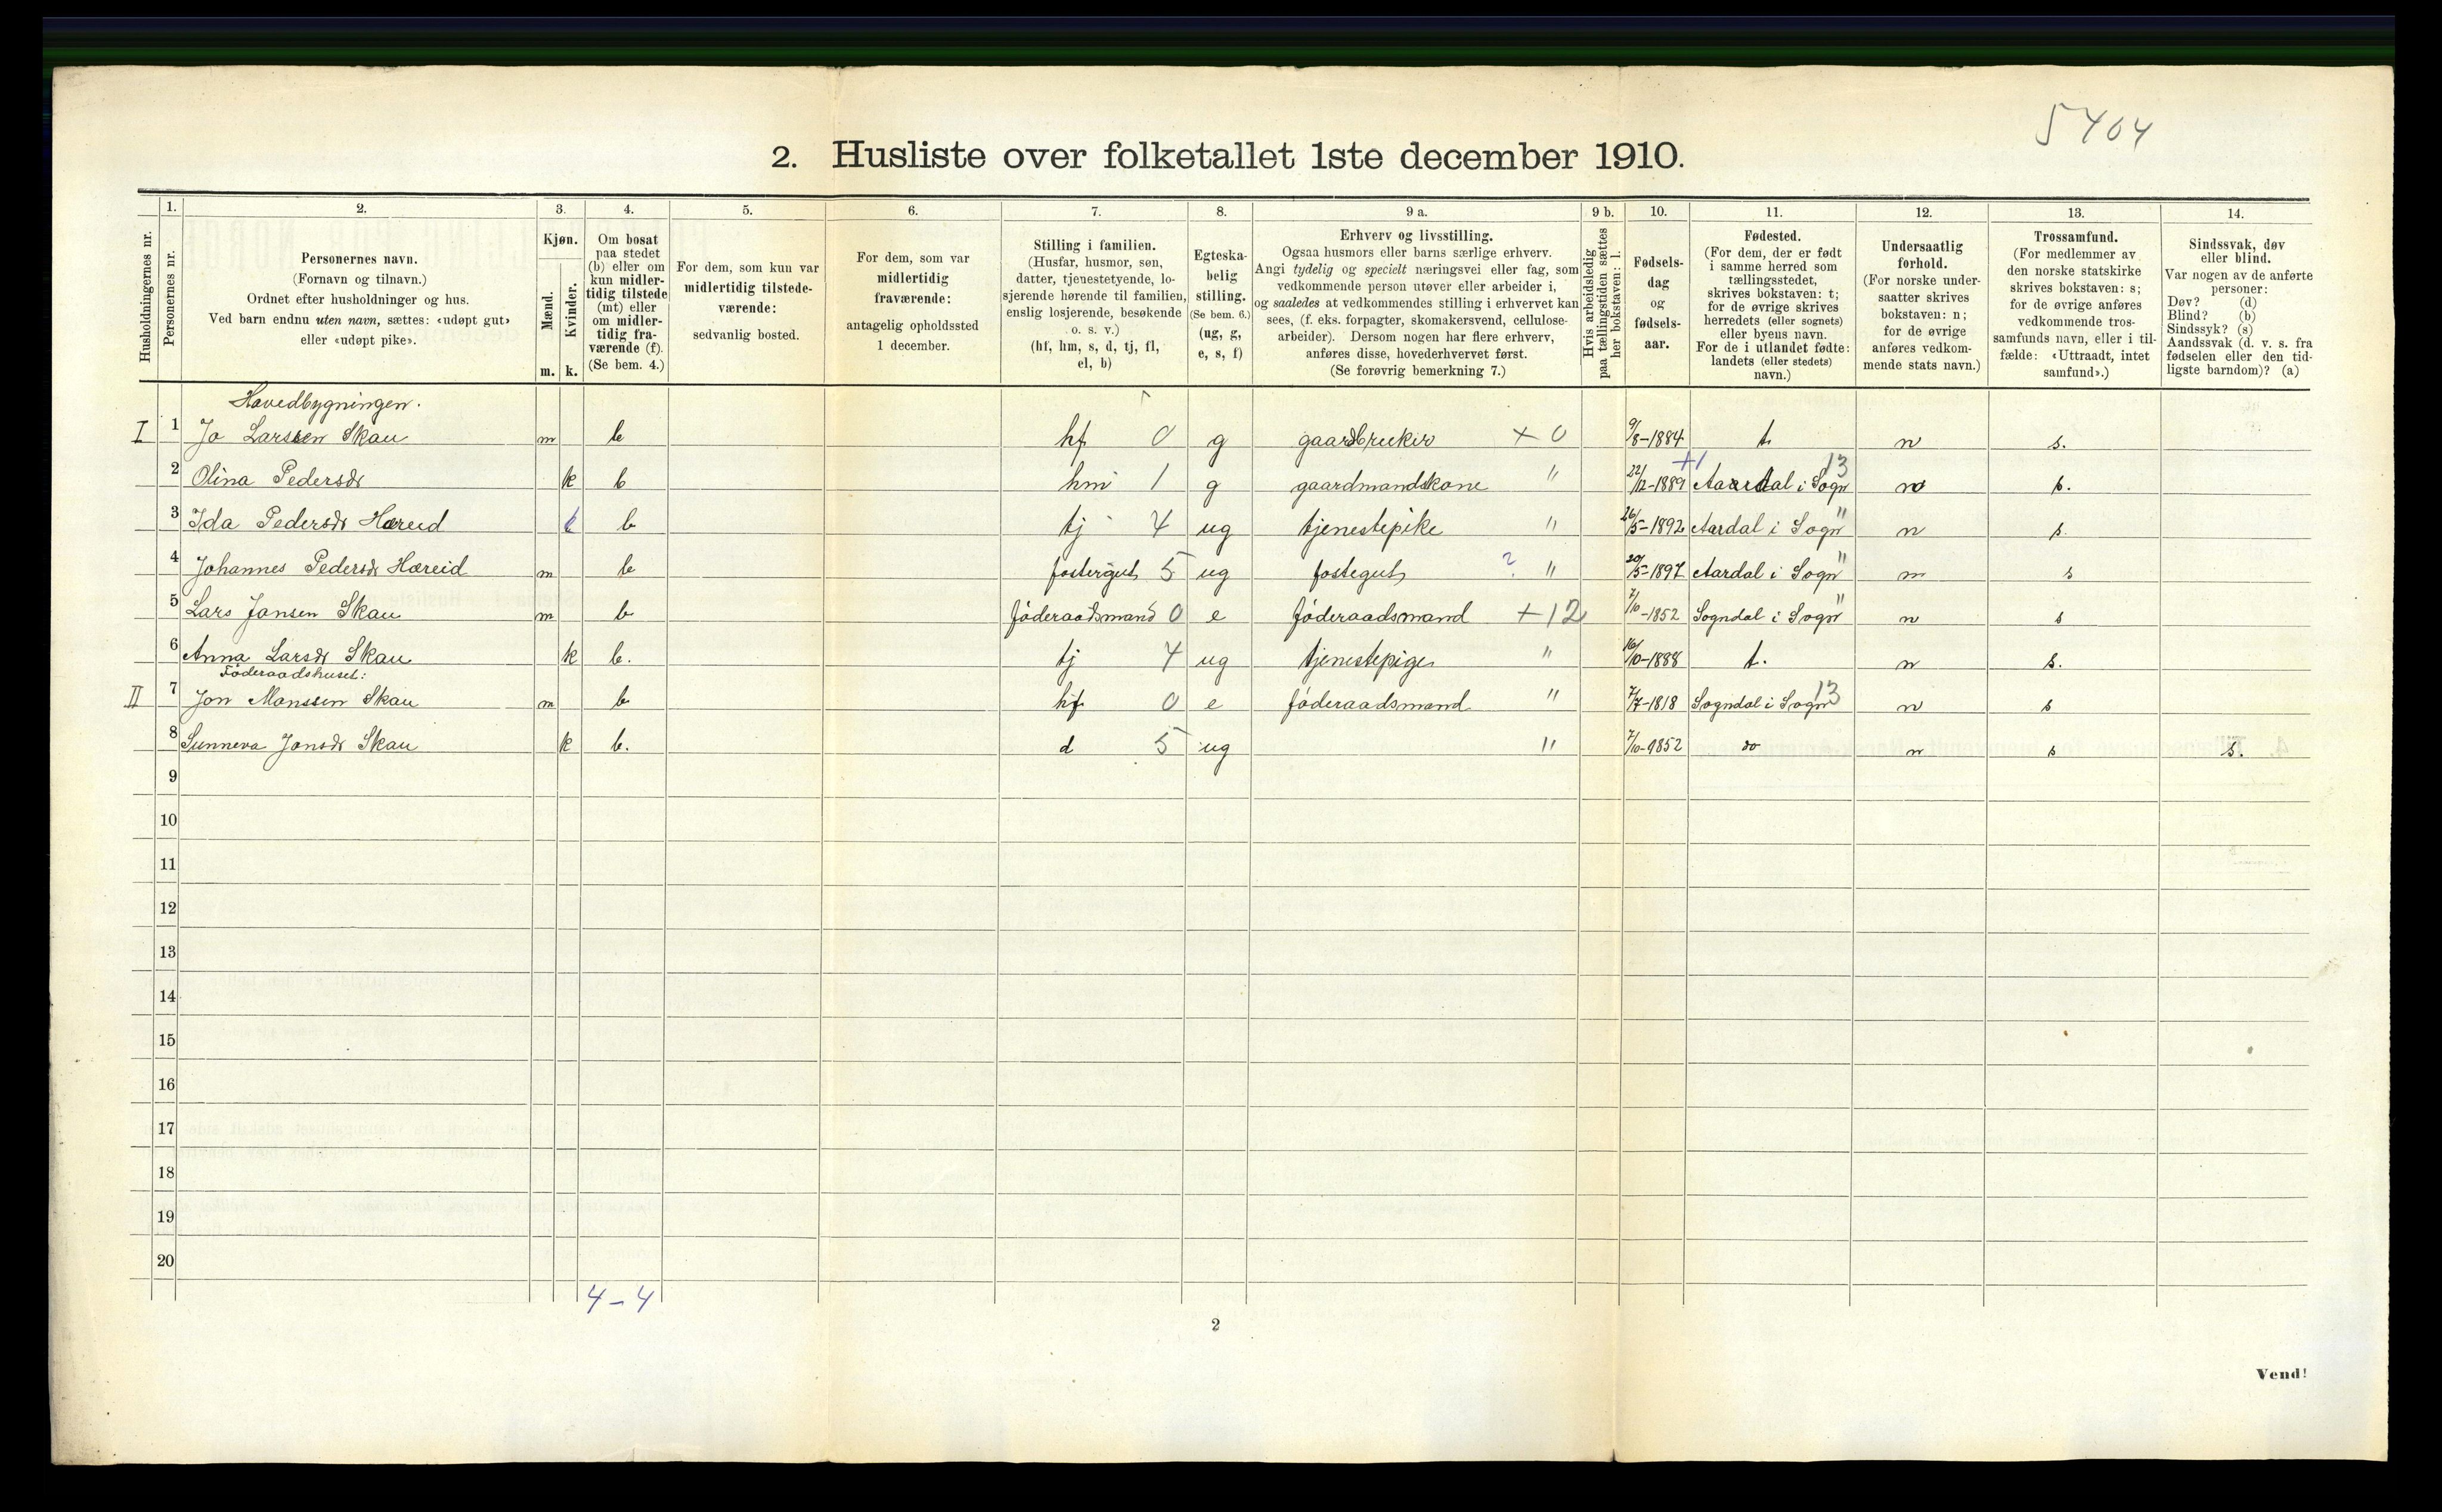 5404
2. Husliste over folketallet 1ste december 1910.
Husholdningernes nr.
1. Personernes nr.
2. Personernes navn.
(Fornavn og tilnavn.)
Ordnet efter husholdninger og hus.
Ved barn endnu uten navn, sættes: «udøpt gut»
eller «udøpt pike».
3. Kjøn.
Mænd. Kvinder.
m. k.
4. Om bosat
paa stedet
(b) eller om
kun midler-
tidig tilstede
(mt) eller
om midler-
tidig fra-
værende (f).
(Se bem. 4.)
5. For dem, som kun var
midlertidig tilstede-
værende:
sedvanlig bosted.
6. For dem, som var
midlertidig
fraværende:
antagelig opholdssted
1 december.
7. Stilling i familien.
(Husfar, husmor, søn,
datter, tjenestetyende, lo-
sjerende hørende til familien,
enslig losjerende, besøkende
o. s. v.)
(hf, hm, s, d, tj, fl,
el, b)
8. Egteska-
belig
stilling.
(Se bem. 6.)
(ug, g,
e, s, f)
9 a. Erhverv og livsstilling.
Ogsaa husmors eller barns særlige erhverv.
Angi tydelig og specielt næringsvei eller fag, som
vedkommende person utøver eller arbeider i,
og saaledes at vedkommendes stilling i erhvervet kan
sees, (f. eks. forpagter, skomakersvend, cellulose-
arbeider). Dersom nogen har flere erhverv,
anføres disse, hovederhvervet først.
(Se forøvrig bemerkning 7.)
9 b. Hvis arbeidsledig
paa tællingstiden sættes
her bokstaven: l.
10. Fødsels-
dag
og
fødsels-
aar.
11. Fødested.
(For dem, der er født
i samme herred som
tællingsstedet,
skrives bokstaven: t;
for de øvrige skrives
herredets (eller sognets)
eller byens navn.
For de i utlandet fødte:
landets (eller stedets)
navn.)
12. Undersaatlig
forhold.
(For norske under-
saatter skrives
bokstaven: n;
for de øvrige
anføres vedkom-
mende stats navn.)
13. Trossamfund.
(For medlemmer av
den norske statskirke
skrives bokstaven: s;
for de øvrige anføres
vedkommende tros-
samfunds navn, eller i til-
fælde: «Uttraadt, intet
samfund».)
14. Sindssvak, døv
eller blind.
Var nogen av de anførte
personer:
Døv? (d)
Blind? (b)
Sindssyk? (s)
Aandssvak (d. v. s. fra
fødselen eller den tid-
ligste barndom)? (a)
Hovedbygningen.
I 1 Jo Larssen Skau m b hf 0 g gaardbruker + 0 9/8-1884 t. n s.
2 Olina Pedersdr k b hm 1 g gaardmandskone " 22/12-1889 +1 Aardal i Sogn 13 n s.
3 Ida Pedersdr Hæreid k b tj 4 ug tjenestepike " 26/5-1892 Aardal i Sogn " n s.
4 Johannes Pedersdr Hæreid m b fostergut 5 ug fostegut ? " 20/5-1897 Aardal i Sogn " n s
5 Lars Jonsen Skau m b føderaadsmand 0 e føderaadsmand + 12 7/10-1852 Sogndal i Sogn " n s
6 Anna Larsdr Skau k b. tj 4 ug tjenestepige " 16/10-1888 t. n s.
Føderaadshuset:
II 7 Jon Monssen Skau m b hf 0 e føderaadsmand " 7/7-1818 Sogndal i Sogn 13 n s
8 Sunneva Jonsdr Skau k b. d 5 ug " 7/10-1852 do n s s.
9
10
11
12
13
14
15
16
17
18
19
20
4-4
2
Vend!